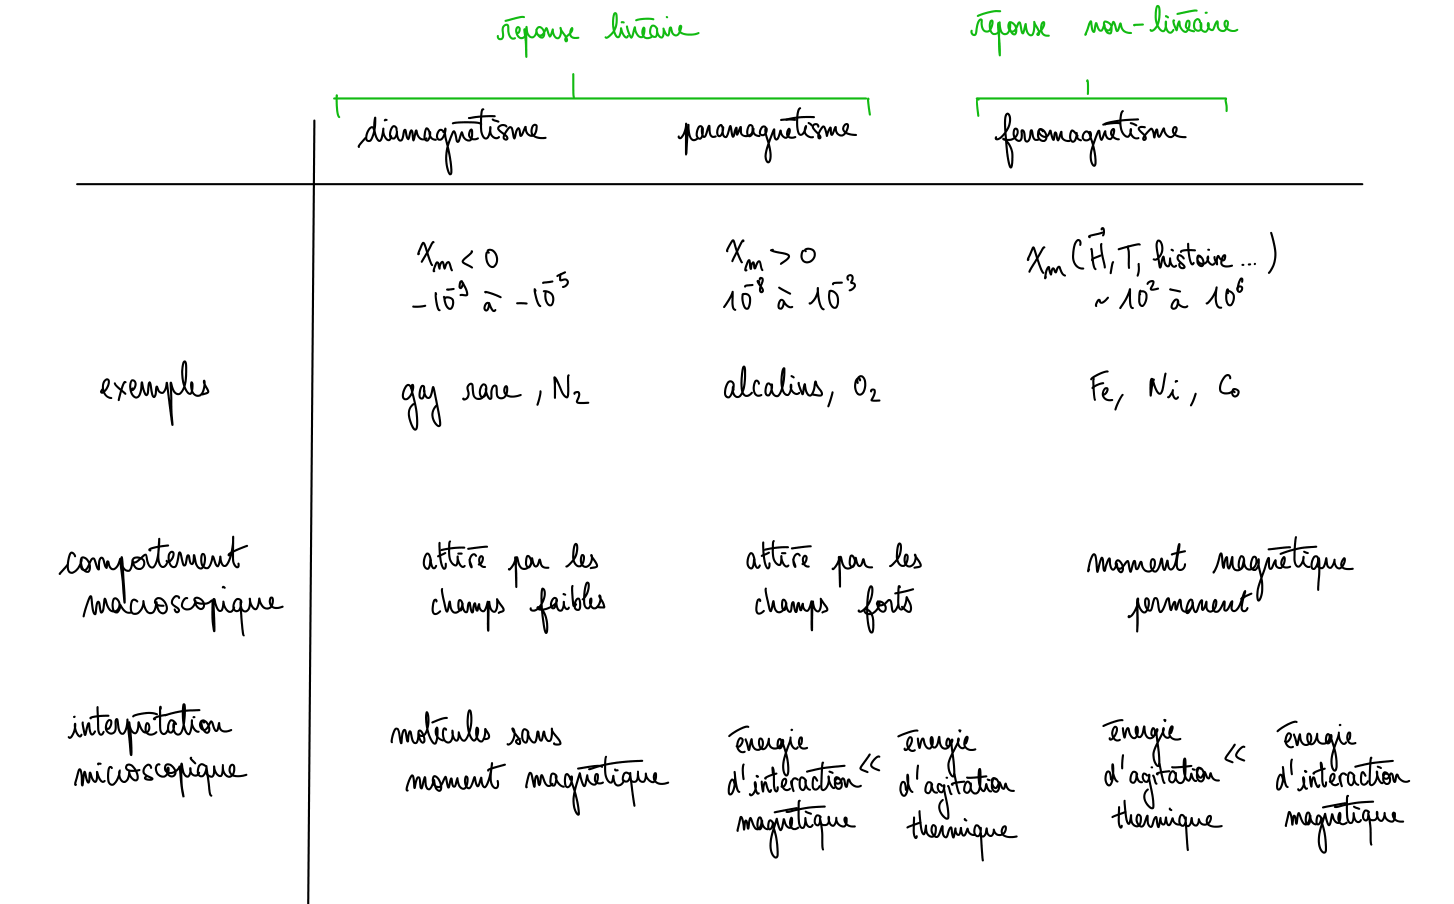 réponse linéaire
réponse non-linéaire
diamagnétisme
paramagnétisme
ferromagnétisme
χm < 0
-10⁻⁹ à -10⁻⁵
χm > 0
10⁻⁸ à 10⁻³
χm (H⃗, T, histoire ...)
~ 10² à 10⁶
exemples
gaz rare, N₂
alcalins, O₂
Fe, Ni, Co
comportement
macroscopique
attiré par les
champs faibles
attiré par les
champs forts
moment magnétique
permanent
interprétation
microscopique
molécules sans
moment magnétique
énergie
d'interaction <<
magnétique
énergie
d'agitation
thermique
énergie
d'agitation <<
thermique
énergie
d'interaction
magnétique